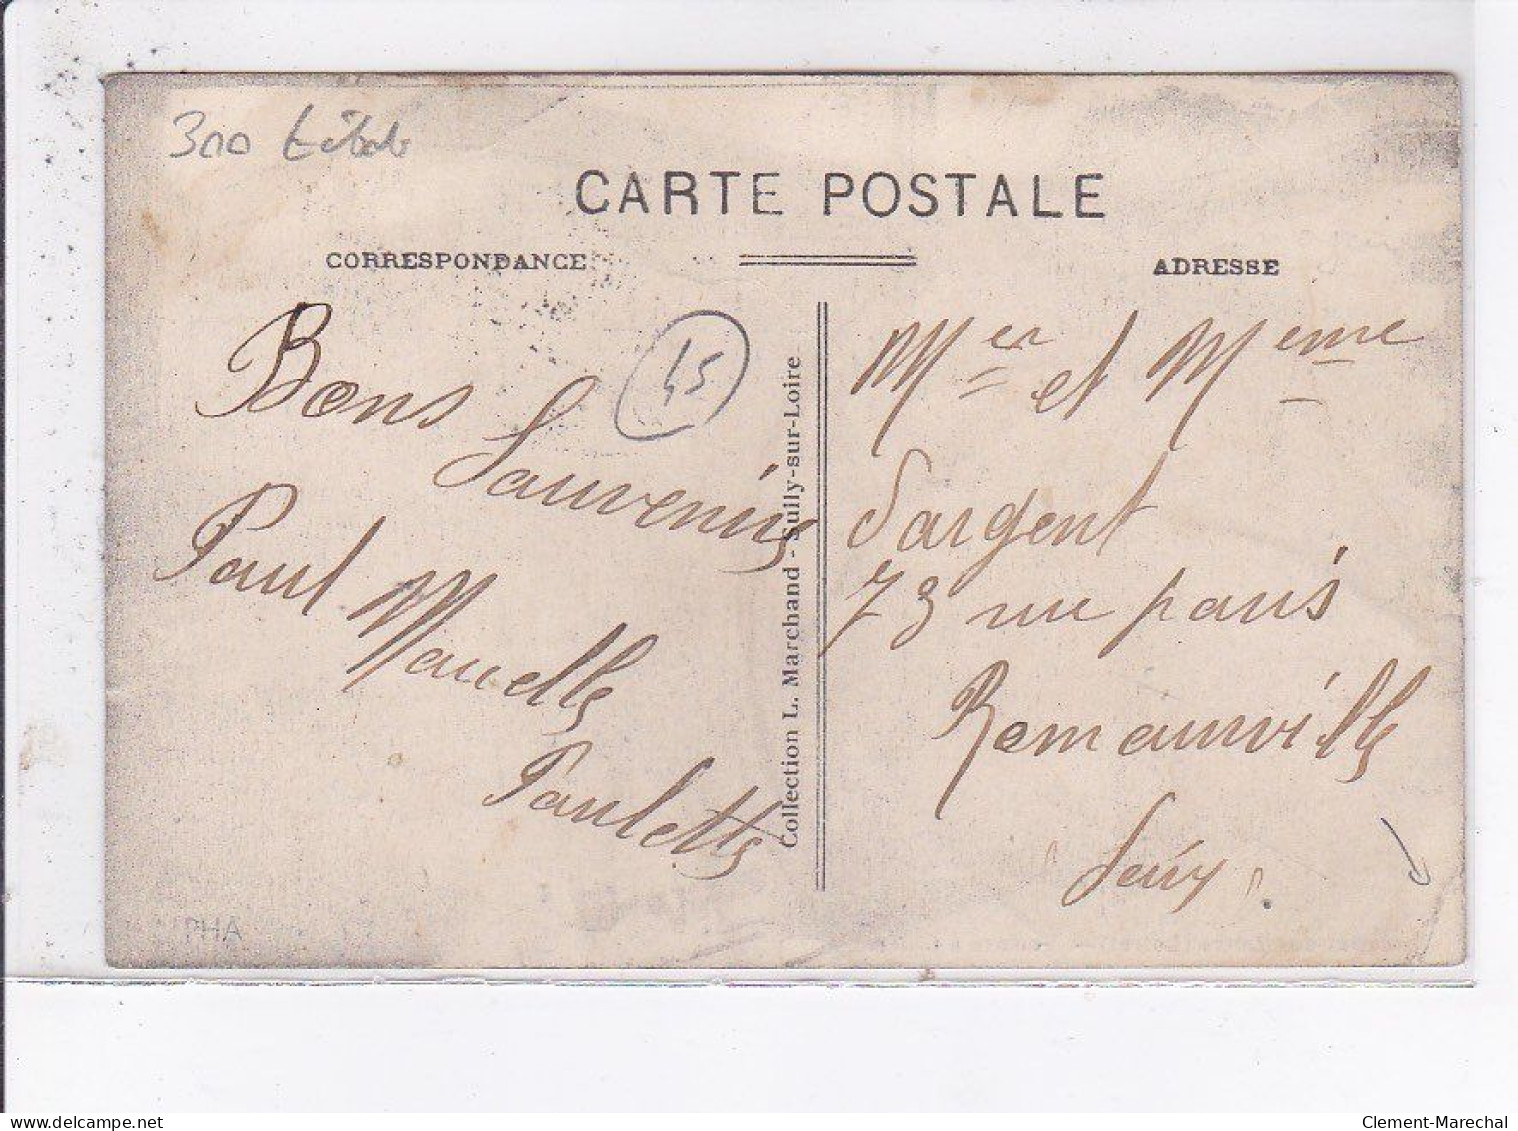 300
CARTE POSTALE
CORRESPONDANCE
ADRESSE
45
Bons
Souvenirs
Paul Marcelle
Paulette
Collection L. Marchand - Sully-sur-Loire
Mer et Meme
Sargent
73 rue paris
Romainville
Seine
PHA
delcampe.net
Clement-Marechal